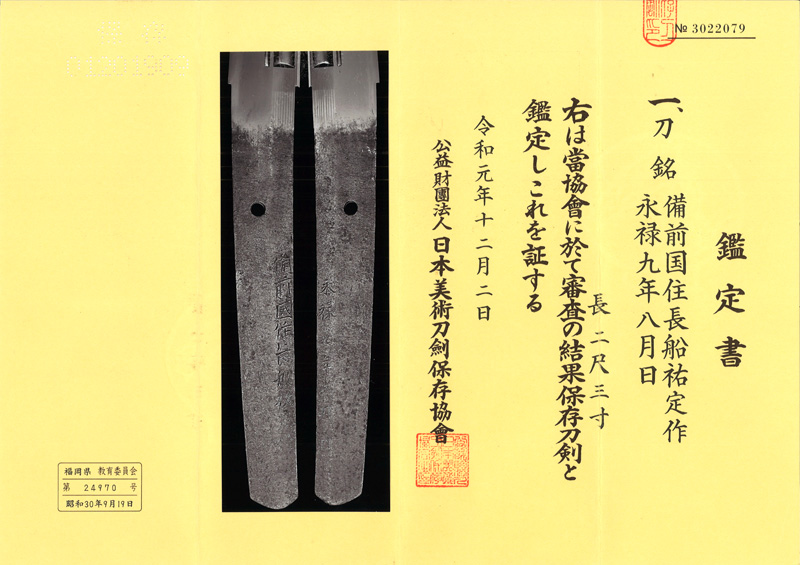 № 3022079
鑑定書
一、刀 銘 備前国住長船祐定作
永禄九年八月日
長 二尺三寸
右は當協會に於て審査の結果保存刀剣と
鑑定しこれを証する
令和元年十二月二日
公益財團法人 日本美術刀劍保存協會
福岡県 教育委員会
第 24970 号
昭和30年9月19日